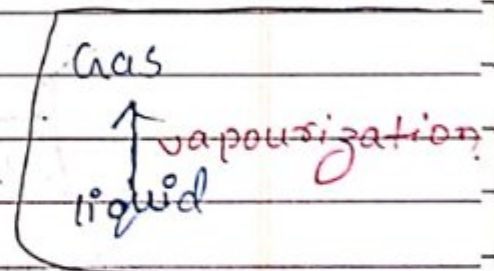 Gas
vapourization
liquid